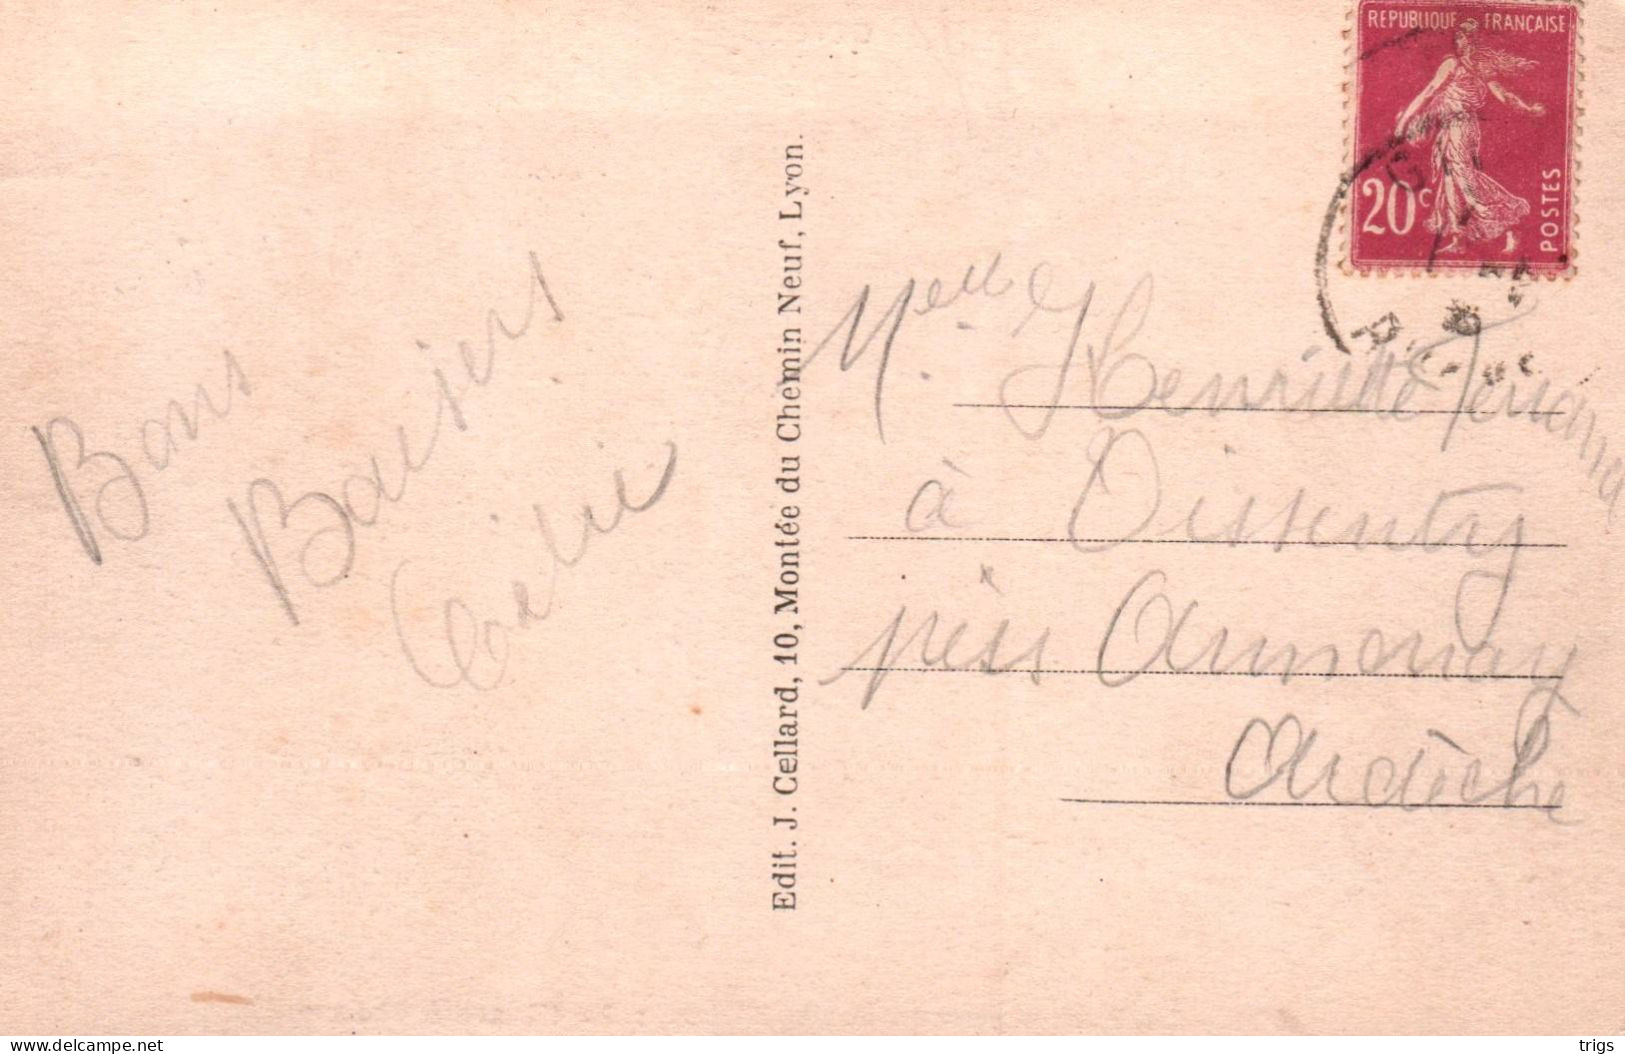 REPUBLIQUE FRANÇAISE
20c
POSTES
Bons
Baisers
Edit. J. Cellard, 10, Montée du Chemin Neuf, Lyon.
Melle Henriette
à Vissenty
près Annonay
Ardèche
delcampe.net
trigs